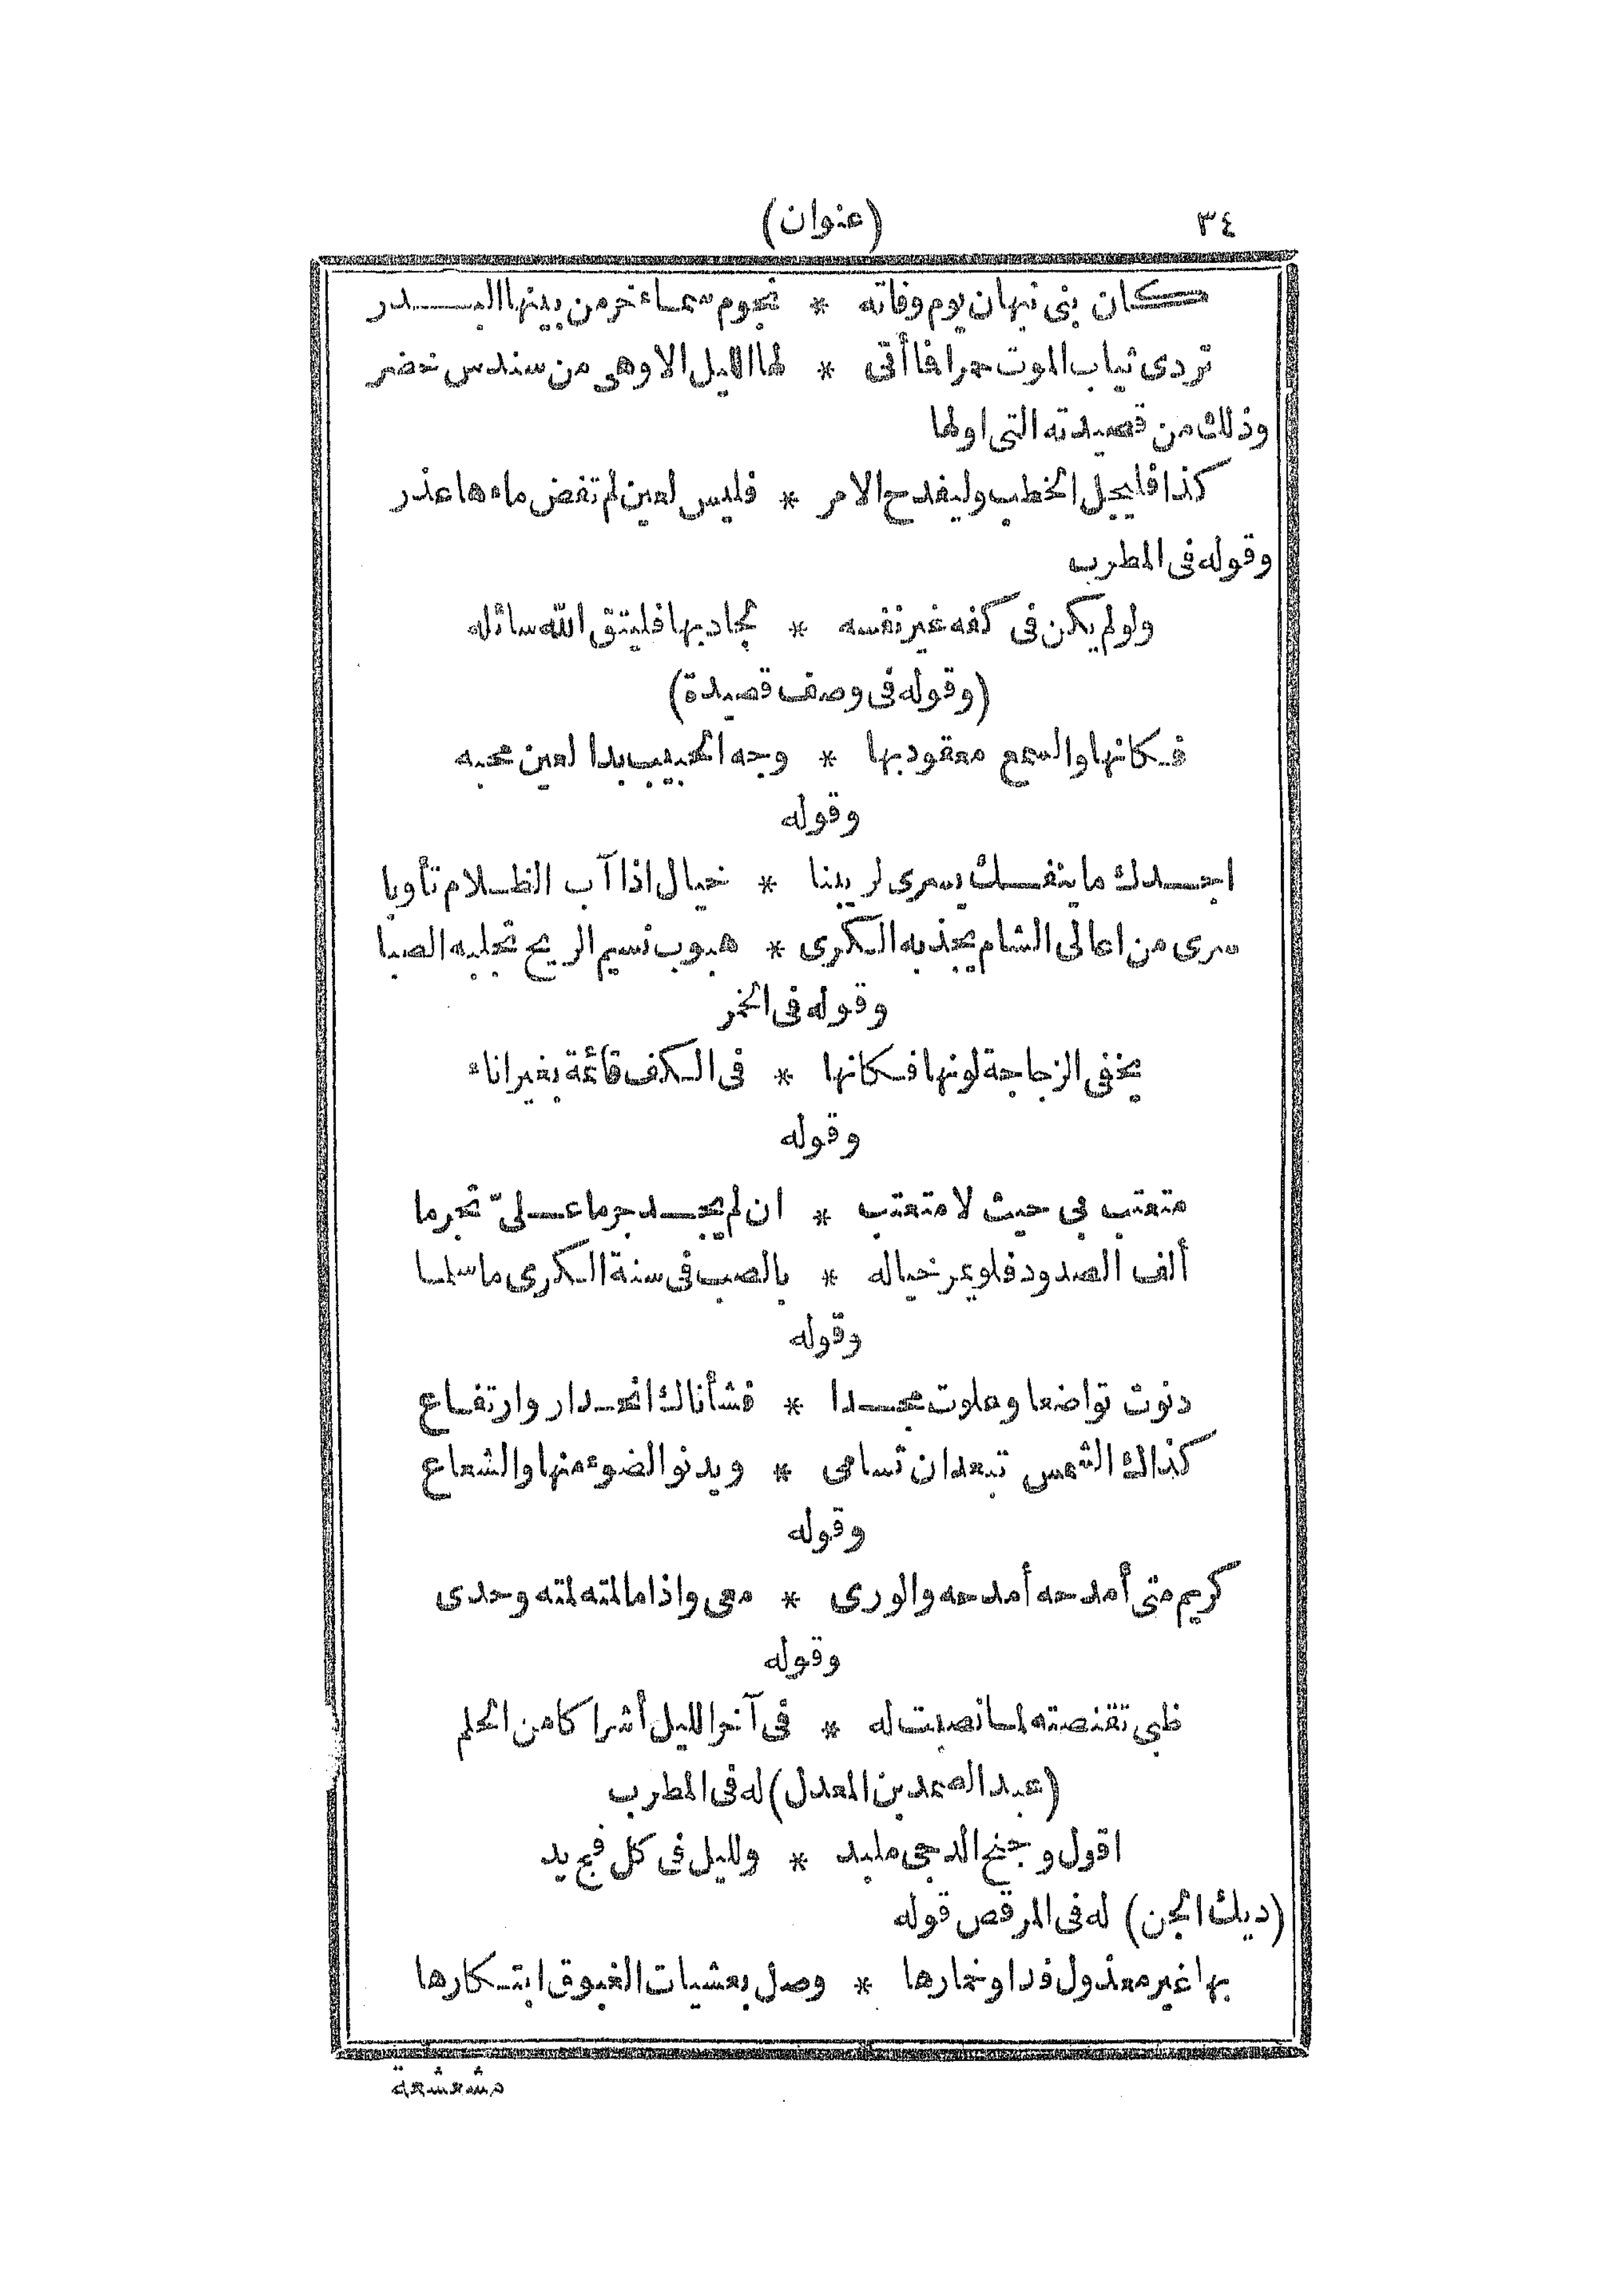 ٣٤ (عنوان)
كان بنى نبهان يوم وفاته * نجوم سماء خر من بينها البدر
تردى ثياب الموت حمرا فما أتى * لها الليل الا وهى من سندس خضر
وذلك من قصيدته التى اولها
كذا فليجل الخطب وليفدح الامر * فليس لعين لم تفض ماءها عذر
وقوله فى المطرب
ولو لم يكن فى كفه غير نفسه * لجاد بها فليتق الله سائله
(وقوله فى وصف قصيدة)
فكانها والسمع معقود بها * وجه الحبيب بدا لعين محبه
وقوله
اجدك ما ينفك يسرى لزينبا * خيال اذا آب الظلام تأوبا
سرى من اعالى الشام يجذبه الكرى * هبوب نسيم الريح تجلبه الصبا
وقوله فى الخمر
يخفى الزجاجة لونها فكانها * فى الكف قائمة بغير اناء
وقوله
متعتب بى حيث لا متعتب * ان لم يجد جرما علىّ تجرما
ألف الصدود فلو يمر خياله * بالصب فى سنة الكرى ما سلما
وقوله
دنوت تواضعا وعلوت مجدا * فشأناك انحدار وارتفاع
كذاك الشمس تبعد ان تسامى * ويدنو الضوء منها والشعاع
وقوله
كريم متى أمدحه أمدحه والورى * معى واذا ما لمته لمته وحدى
وقوله
ظبى تقنصته لما نصبت له * فى آخر الليل أشراكا من الحلم
(عبد الصمد بن المعدل) له فى المطرب
اقول وجنح الدجى ملبد * ولليل فى كل فج يد
(ديك الجن) له فى المرقص قوله
بها غير معذول فداو خمارها * وصل بعشيات الغبوق ابتكارها
مشعشعة